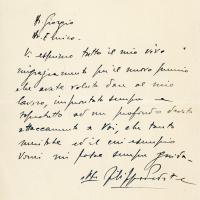 Giorgio
Enrico
Vi esprimo tutto il mio vivo
ringraziamento per il nuovo premio
che avete voluto dare al mio
lavoro, improntato sempre e
soprattutto ad un profondo devoto
attaccamento a Voi, che tanto
meritate ed il cui esempio
vorrei mi fosse sempre guida.